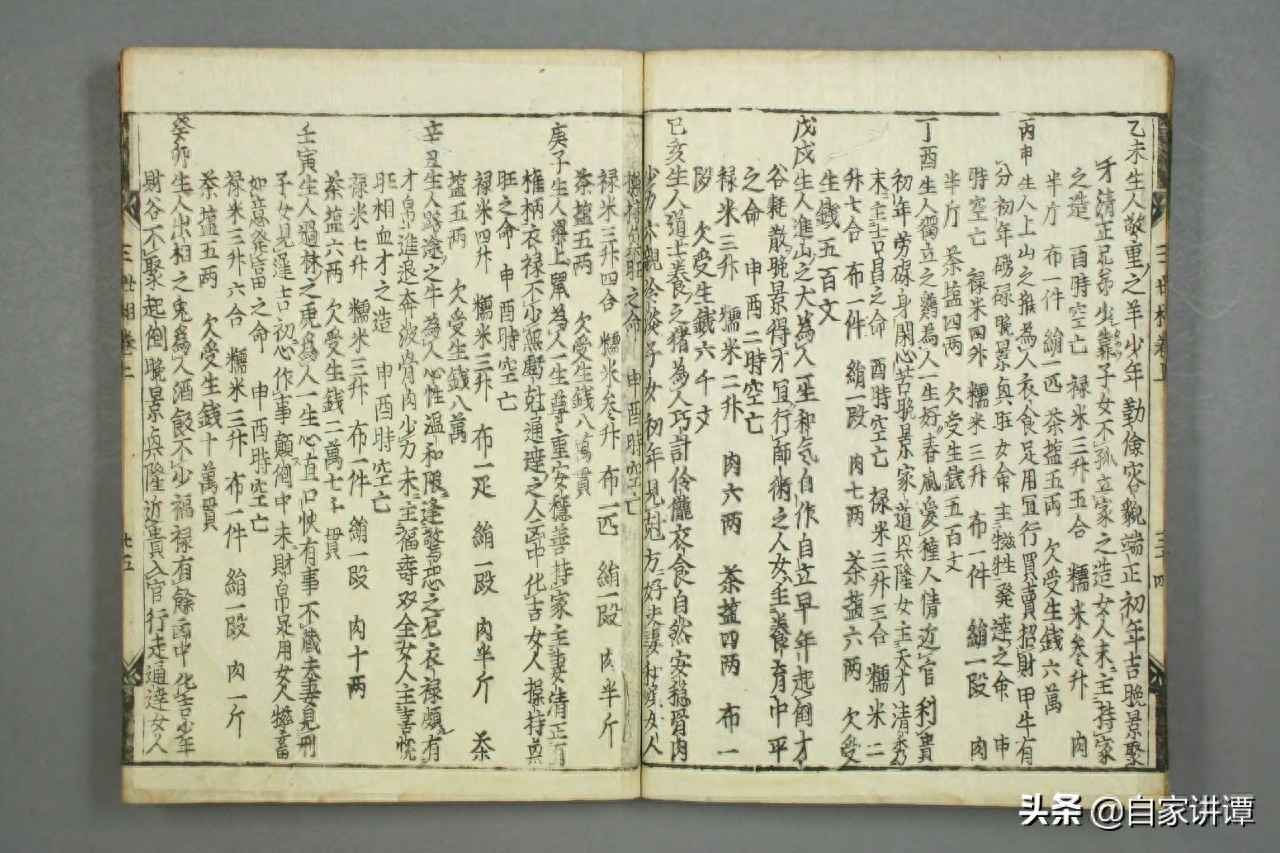 乙未生人敬重之羊少年勤儉容貌端正初年吉晚景聚
才清正兄弟少靠子女不孤立家之造女人末主持家
之造 酉時空亡 禄米三升五合 糯米叁升 肉
半斤 布一件 絹一匹 茶塩五両 欠受生錢六萬
丙申生人上山之猴為人衣食足用宜行買賣招財甲牛有
分初年磅碌晚景真旺女命主發達之命 申
時空亡 禄米四升 糯米三升 布一件 絹一段 肉
半斤 茶塩四两 欠受生錢五百文
丁酉生人獨立之鷄為人一生好春風愛種人情近官利貴
初年劳碌身閑心苦晚景家道興隆女主天才清秀
末主吉昌之命 酉時空亡 禄米三升三合 糯米二
升七合 布一件 絹一段 肉七两 茶塩六两 欠受
生錢五百文
戊戌生人進山之犬為人一生和气自作自立早年起倒才
谷耗散晚景得才宜行師術之人女主養育中平
之命 申酉二時空亡
禄米三升 糯米二升 肉六两 茶塩四两 布一
段 欠受生錢六千文
己亥生人道士養之猪為人巧計伶俐衣食自然安稳骨肉
少力六親冷淡子女初年見尅方好夫妻和順女人
操持真旺之命 申酉時空亡
禄米三升四合 糯米叁升 布一匹 絹一段 肉半斤
茶塩五两 欠受生錢八萬貫
庚子生人梁上鼠為人一生尊重安穩善持家主事清正有
權柄衣禄不少無虧尅通達之人凶中化吉女人操持真
旺之命 申酉時空亡
禄米四升 糯米三升 布一疋 絹一段 肉半斤 茶
塩五两 欠受生錢八萬
辛丑生人路途之牛為人心性温和限逢驚恐之厄衣禄頗有
才帛進退奔波骨肉少力末主福壽双全女人主喜悅
旺相血才之造 申酉時空亡
禄米七升 糯米三升 布一件 絹一段 肉十两
茶塩六两 欠受生錢二萬七千貫
壬寅生人過林之虎為人一生心直口快有事不藏夫妻見刑
子女見遲吉初心作事顛倒中末財帛足用女人犧畜
如意發吉苗之命 申酉時空亡
禄米三升六合 糯米三升 布一件 絹一段 肉一斤
茶塩五两 欠受生錢十萬貫
癸卯生人出相之兔為人酒飯不少福禄有餘凶中化吉少年
財谷不聚起倒晚景興隆近貴入官行走通達女人
三世相卷上 三四
三世相卷上 卅五
头条 @自家讲谭